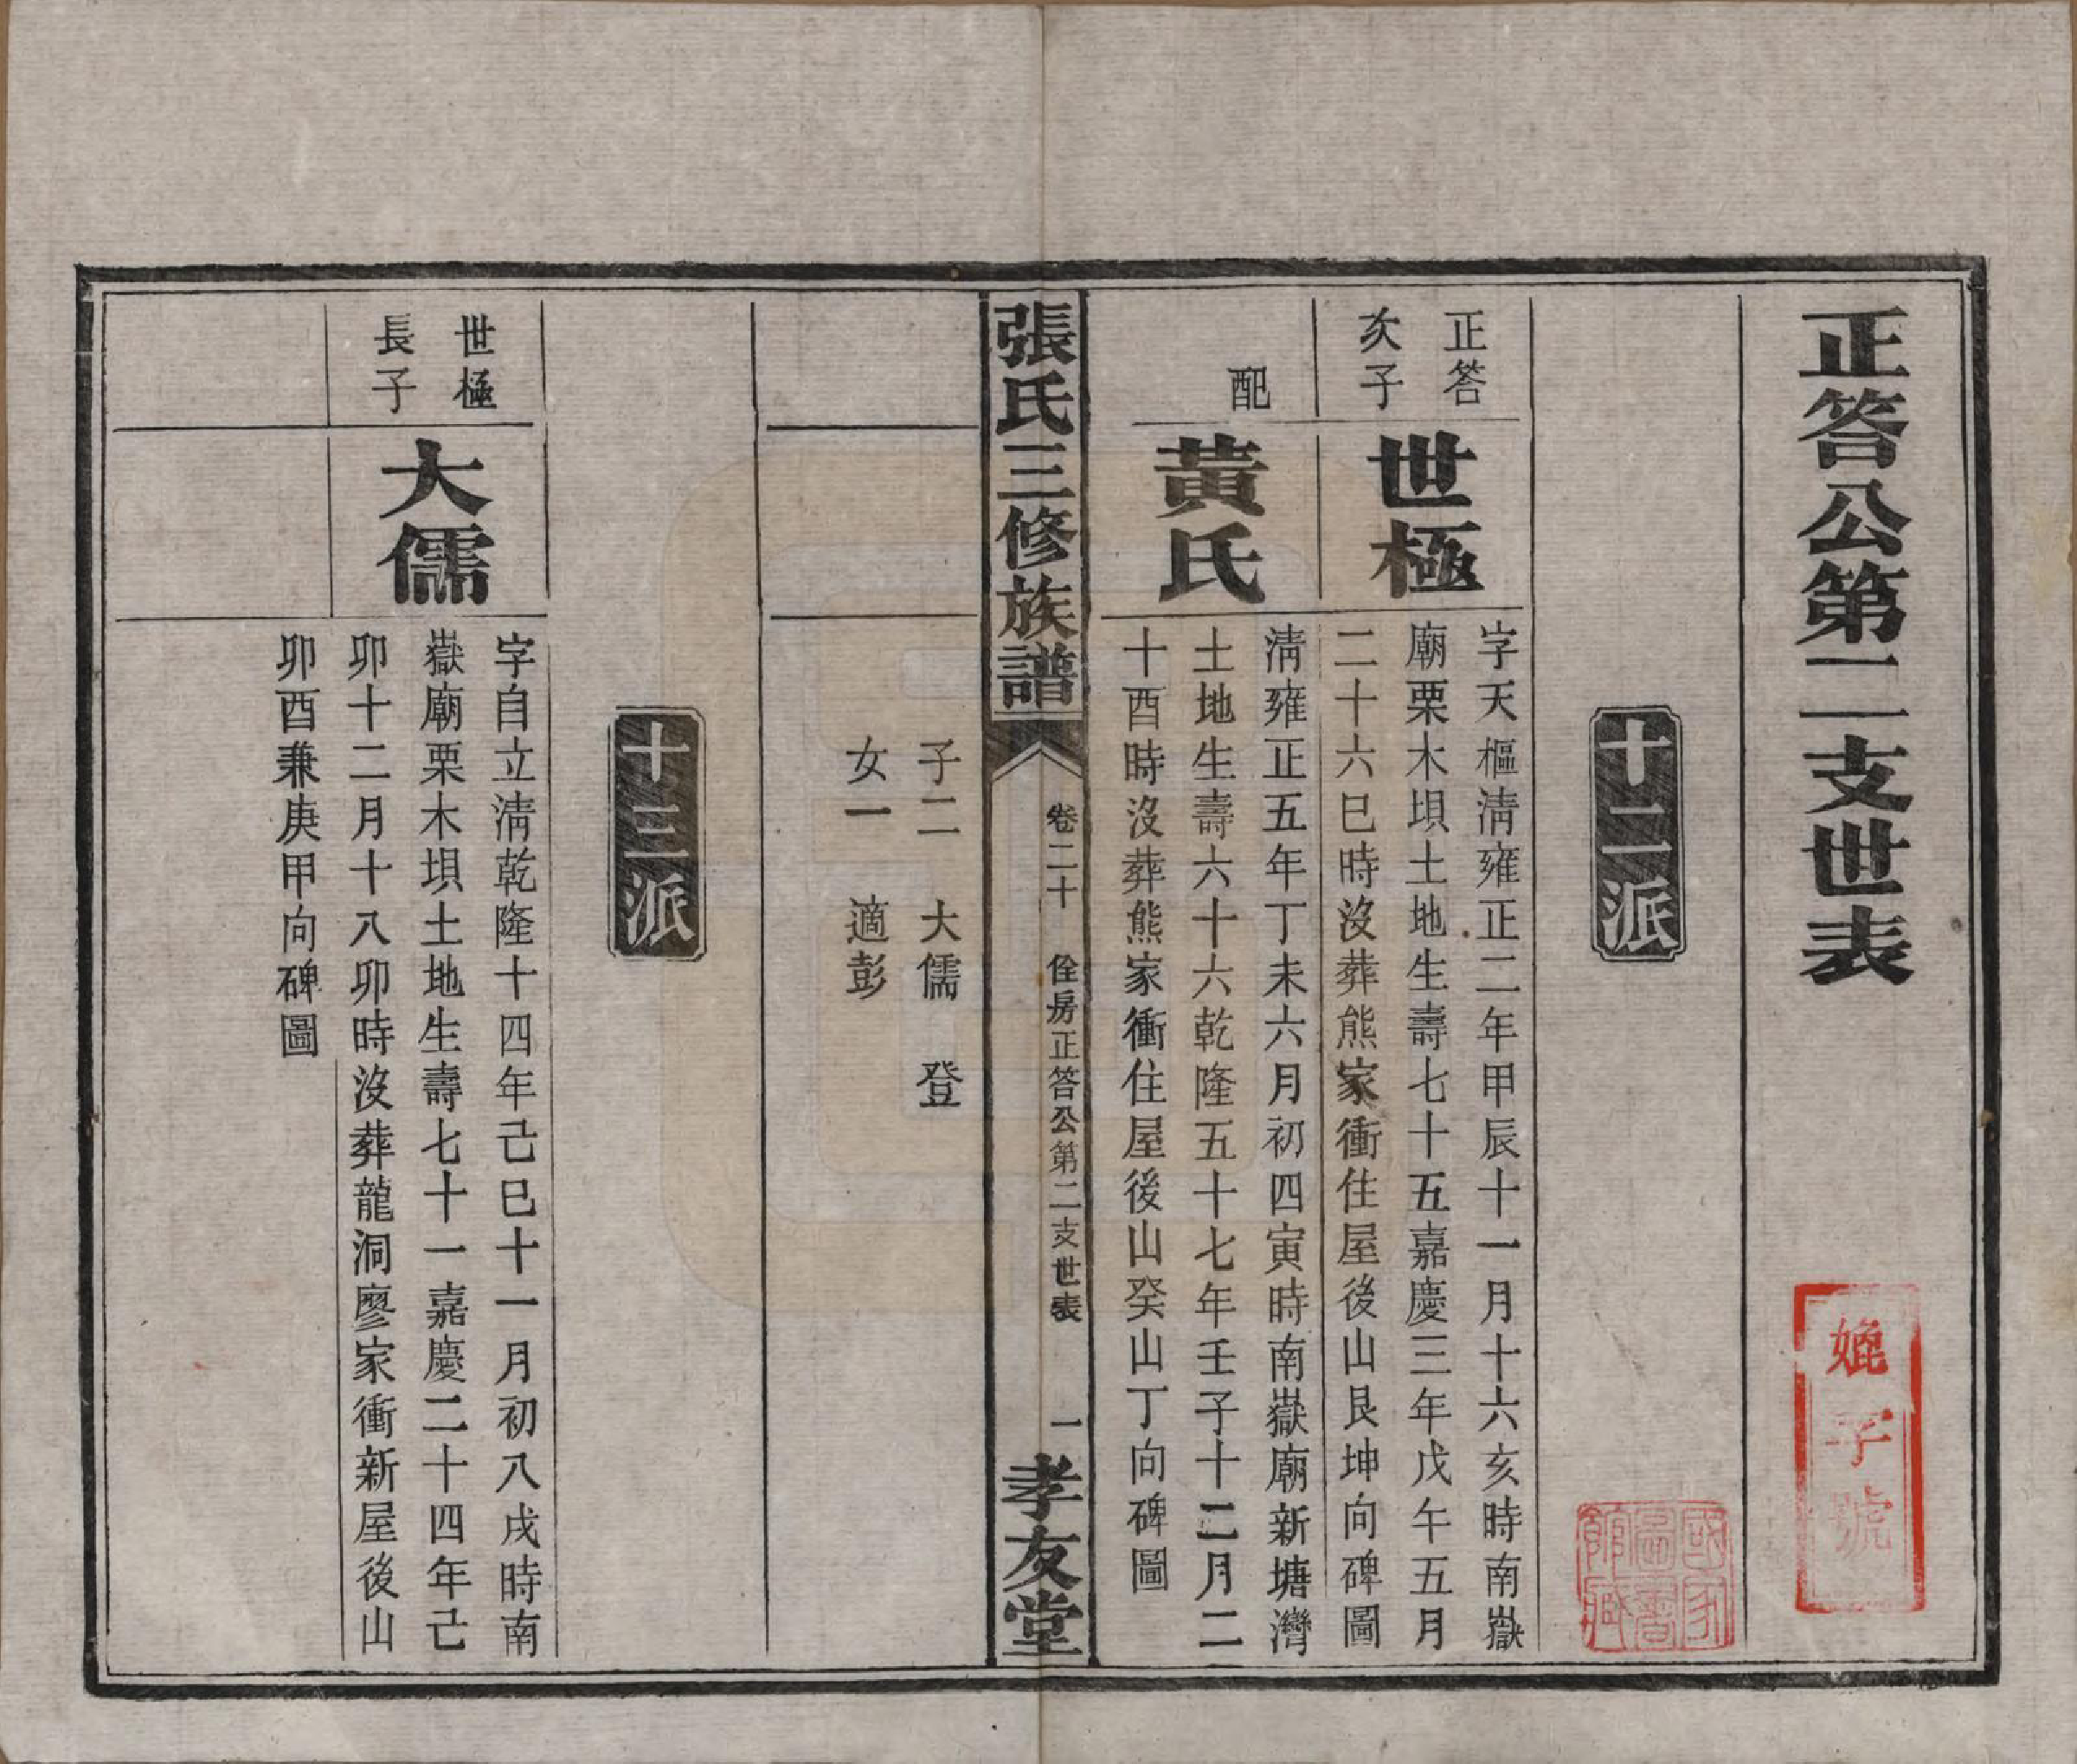 正答公第二支世表
十二派
正答
次子
世極
字天樞淸雍正二年甲辰十一月十六亥時南嶽
廟栗木垻土地生壽七十五嘉慶三年戊午五月
二十六巳時沒葬熊家衝住屋後山艮坤向碑圖
配
黃氏
淸雍正五年丁未六月初四寅時南嶽廟新塘灣
土地生壽六十六乾隆五十七年壬子十二月二
十酉時沒葬熊家衝住屋後山癸山丁向碑圖
張氏三修族譜
卷二十 佺房正答公第二支世表
一
孝友堂
子二 大儒 登
女一 適彭
十三派
世極
長子
大儒
字自立淸乾隆十四年己巳十一月初八戌時南
嶽廟栗木垻土地生壽七十一嘉慶二十四年己
卯十二月十八卯時沒葬龍洞廖家衝新屋後山
卯酉兼庚甲向碑圖
子號
國家圖書館藏